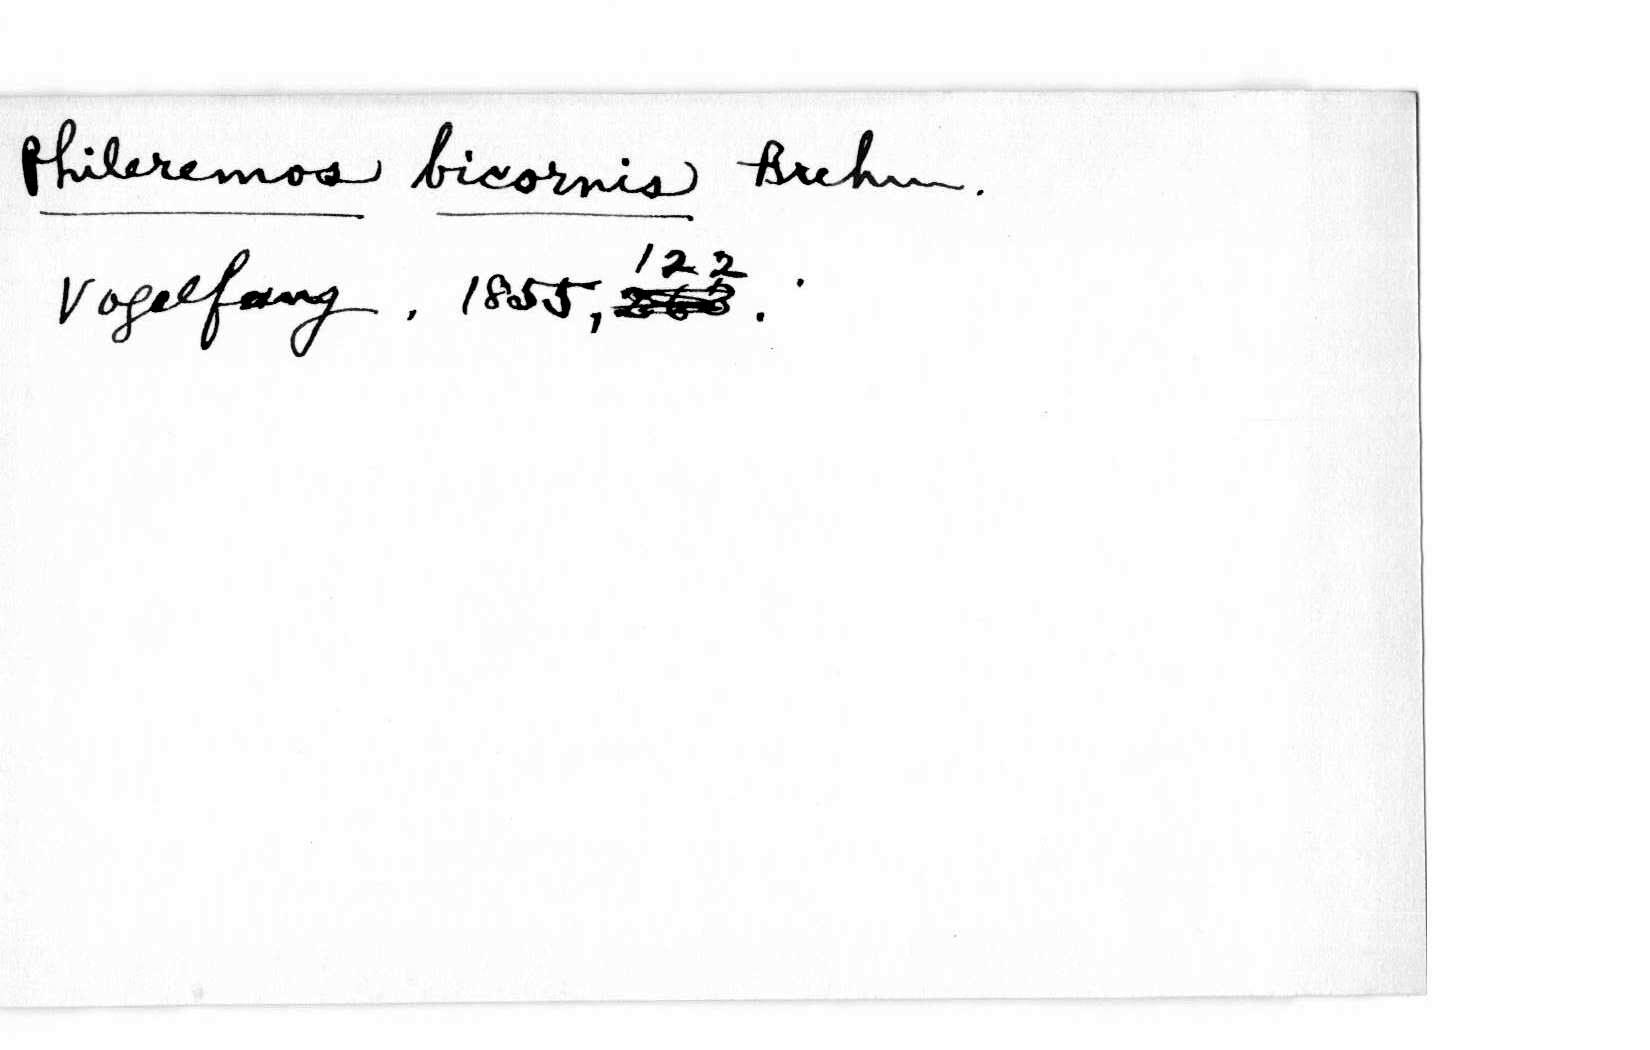 Phileremos bicornis Brehm.
Vogelfang. 1855, 122.